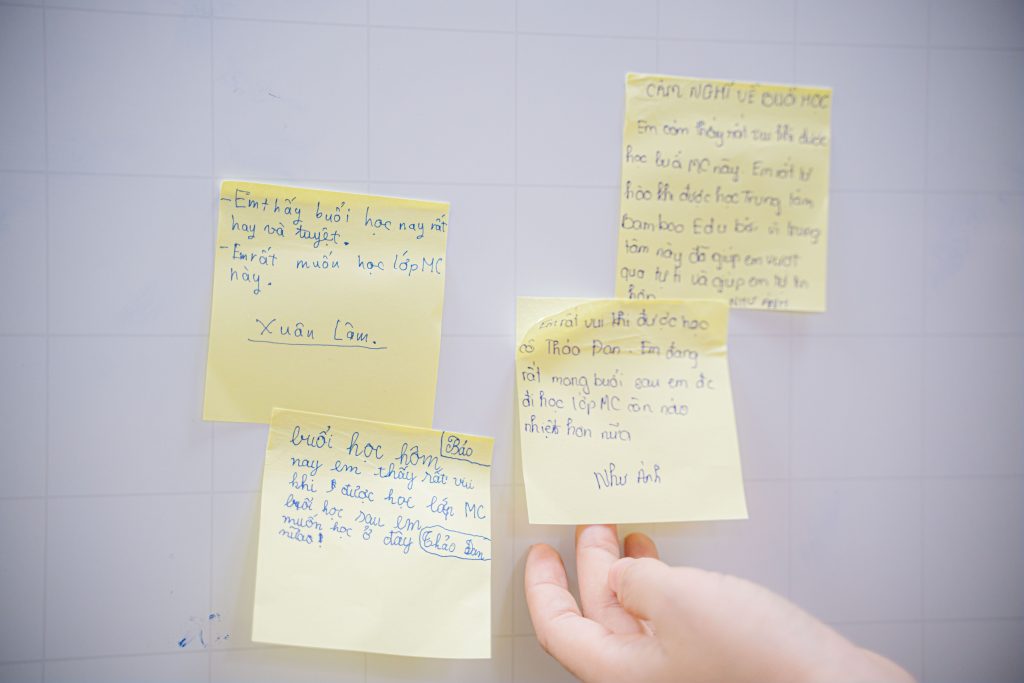 - Em thấy buổi học nay rất
hay và tuyệt.
- Em rất muốn học lớp MC
này.
Xuân Lâm.
buổi học hôm Báo
nay em thấy rất vui
khi được học lớp MC
buổi học sau em
muốn học ở đây Thảo Đan
nữa!
CẢM NGHĨ VỀ BUỔI HỌC
Em cảm thấy rất vui khi được
học buổi MC này. Em rất tự
hào khi được học Trung tâm
Bamboo Edu bởi vì trung
tâm này đã giúp em vượt
qua tự ti và giúp em tự tin
hơn NHƯ ÁNH
Em rất vui khi được học
cô Thảo Đan. Em đang
rất mong buổi sau em đc
đi học lớp MC còn náo
nhiệt hơn nữa
Như Ánh